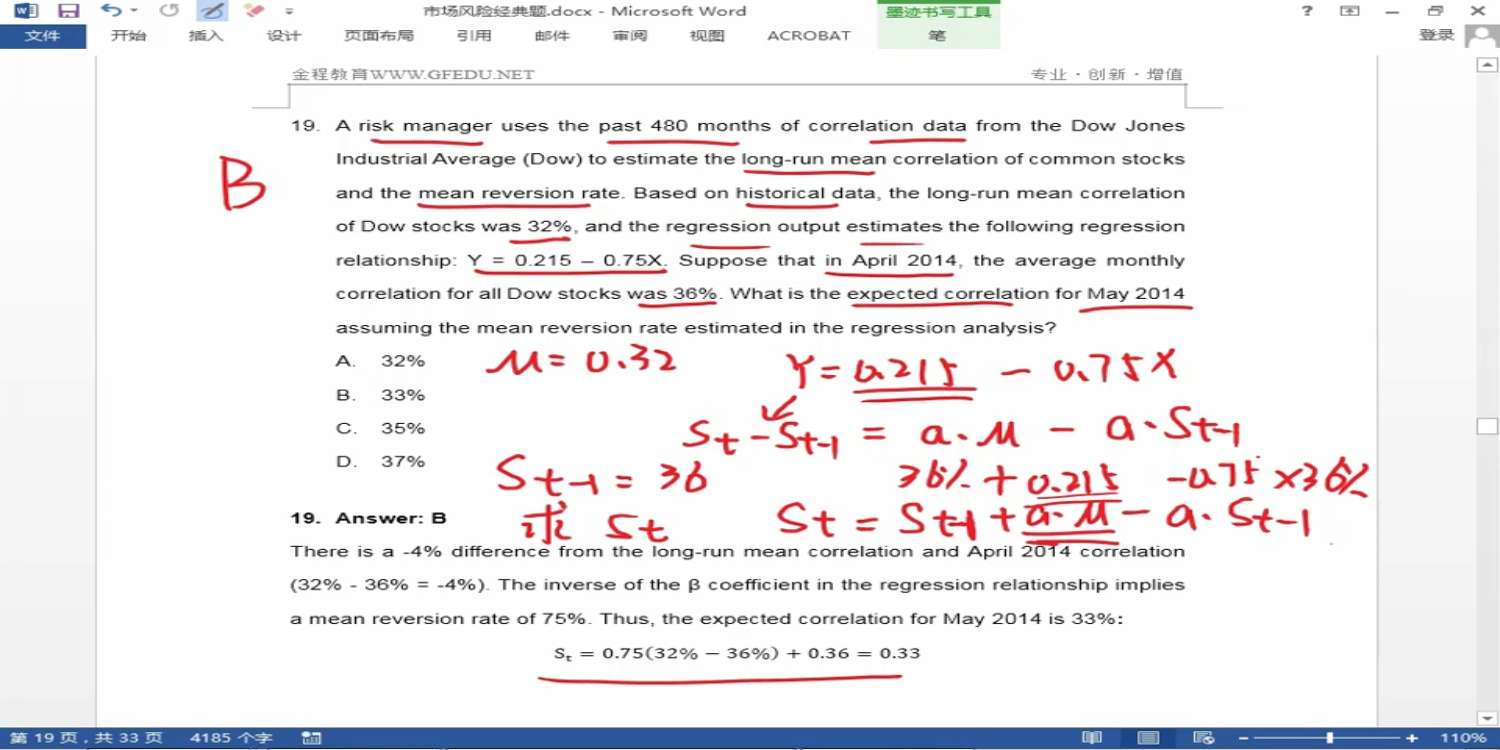 市场风险经典题.docx - Microsoft Word
墨迹书写工具
文件 开始 插入 设计 页面布局 引用 邮件 审阅 视图 ACROBAT 笔 登录
金程教育WWW.GFEDU.NET 专业·创新·增值
19. A risk manager uses the past 480 months of correlation data from the Dow Jones
Industrial Average (Dow) to estimate the long-run mean correlation of common stocks
B
and the mean reversion rate. Based on historical data, the long-run mean correlation
of Dow stocks was 32%, and the regression output estimates the following regression
relationship: Y = 0.215 – 0.75X. Suppose that in April 2014, the average monthly
correlation for all Dow stocks was 36%. What is the expected correlation for May 2014
assuming the mean reversion rate estimated in the regression analysis?
A. 32%
μ = 0.32
Y = 0.215 - 0.75X
B. 33%
C. 35%
St - St-1 = a·μ - a·St-1
D. 37%
St-1 = 36
36% + 0.215 - 0.75 × 36%
19. Answer: B
求 St
St = St-1 + a·μ - a·St-1
There is a -4% difference from the long-run mean correlation and April 2014 correlation
(32% - 36% = -4%). The inverse of the β coefficient in the regression relationship implies
a mean reversion rate of 75%. Thus, the expected correlation for May 2014 is 33%:
St = 0.75(32% − 36%) + 0.36 = 0.33
第 19 页，共 33 页 4185 个字 110%